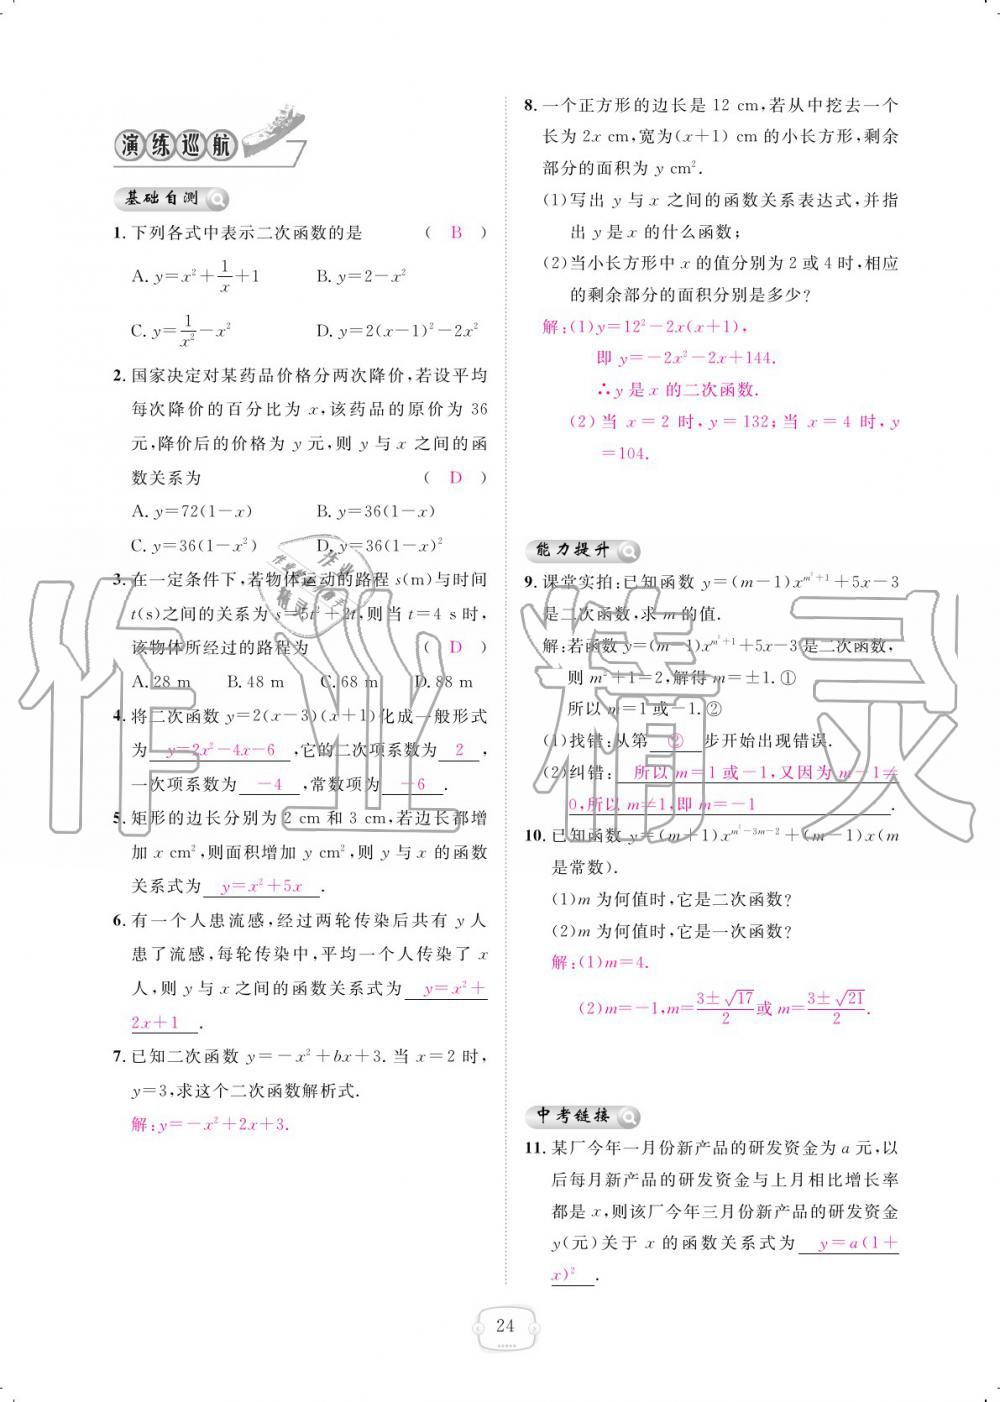 演练巡航
基础自测
1. 下列各式中表示二次函数的是 ( B )
A. y=x²+1/x+1 B. y=2-x²
C. y=1/x²-x² D. y=2(x-1)²-2x²
2. 国家决定对某药品价格分两次降价,若设平均
每次降价的百分比为 x,该药品的原价为 36
元,降价后的价格为 y 元,则 y 与 x 之间的函
数关系为 ( D )
A. y=72(1-x) B. y=36(1-x)
C. y=36(1-x²) D. y=36(1-x)²
3. 在一定条件下,若物体运动的路程 s(m)与时间
t(s)之间的关系为 s=5t²+2t,则当 t=4 s时,
该物体所经过的路程为 ( D )
A. 28 m B. 48 m C. 68 m D. 88 m
4. 将二次函数 y=2(x-3)(x+1)化成一般形式
为 y=2x²-4x-6 ,它的二次项系数为 2 ,
一次项系数为 -4 ,常数项为 -6 .
5. 矩形的边长分别为 2 cm 和 3 cm,若边长都增
加 x cm²,则面积增加 y cm²,则 y 与 x 的函数
关系式为 y=x²+5x .
6. 有一个人患流感,经过两轮传染后共有 y 人
患了流感,每轮传染中,平均一个人传染了 x
人,则 y 与 x 之间的函数关系式为 y=x²+
2x+1 .
7. 已知二次函数 y=-x²+bx+3. 当 x=2 时,
y=3,求这个二次函数解析式.
解:y=-x²+2x+3.
8. 一个正方形的边长是 12 cm,若从中挖去一个
长为 2x cm,宽为(x+1) cm的小长方形,剩余
部分的面积为 y cm².
(1)写出 y 与 x 之间的函数关系表达式,并指
出 y 是 x 的什么函数;
(2)当小长方形中 x 的值分别为 2 或 4 时,相应
的剩余部分的面积分别是多少?
解:(1)y=12²-2x(x+1),
即 y=-2x²-2x+144.
∴y 是 x 的二次函数.
(2)当 x=2 时,y=132;当 x=4 时,y
=104.
能力提升
9. 课堂实拍:已知函数 y=(m-1)x^{m²+1}+5x-3
是二次函数,求 m 的值.
解:若函数 y=(m-1)x^{m²+1}+5x-3是二次函数,
则 m²+1=2,解得 m=±1. ①
所以 m=1 或-1. ②
(1)找错:从第 ② 步开始出现错误.
(2)纠错: 所以 m=1 或-1,又因为 m-1≠
0,所以 m≠1,即 m=-1 .
10. 已知函数 y=(m+1)x^{m²-3m-2}+(m-1)x(m
是常数).
(1)m 为何值时,它是二次函数?
(2)m 为何值时,它是一次函数?
解:(1)m=4.
(2)m=-1,m=(3±√17)/2或 m=(3±√21)/2.
中考链接
11. 某厂今年一月份新产品的研发资金为 a 元,以
后每月新产品的研发资金与上月相比增长率
都是 x,则该厂今年三月份新产品的研发资金
y(元)关于 x 的函数关系式为 y=a(1+
x)² .
24
作业精灵